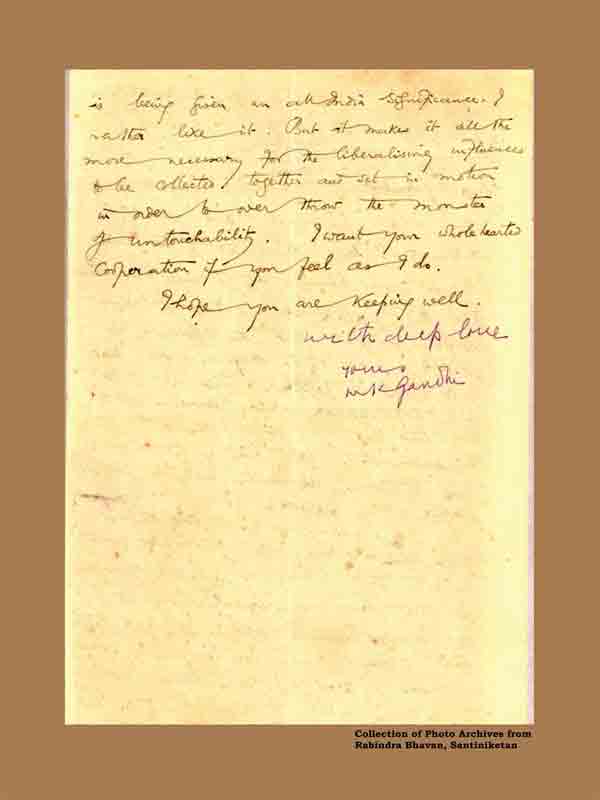 is being given an all India significance. I
rather like it. But it makes it all the
more necessary for the liberalising influences
to be collected together and set in motion
in order to over throw the monster
of untouchability. I want your whole hearted
cooperation if you feel as I do.
I hope you are keeping well.
with deep love
yours
MK Gandhi
Collection of Photo Archives from
Rabindra Bhavan, Santiniketan